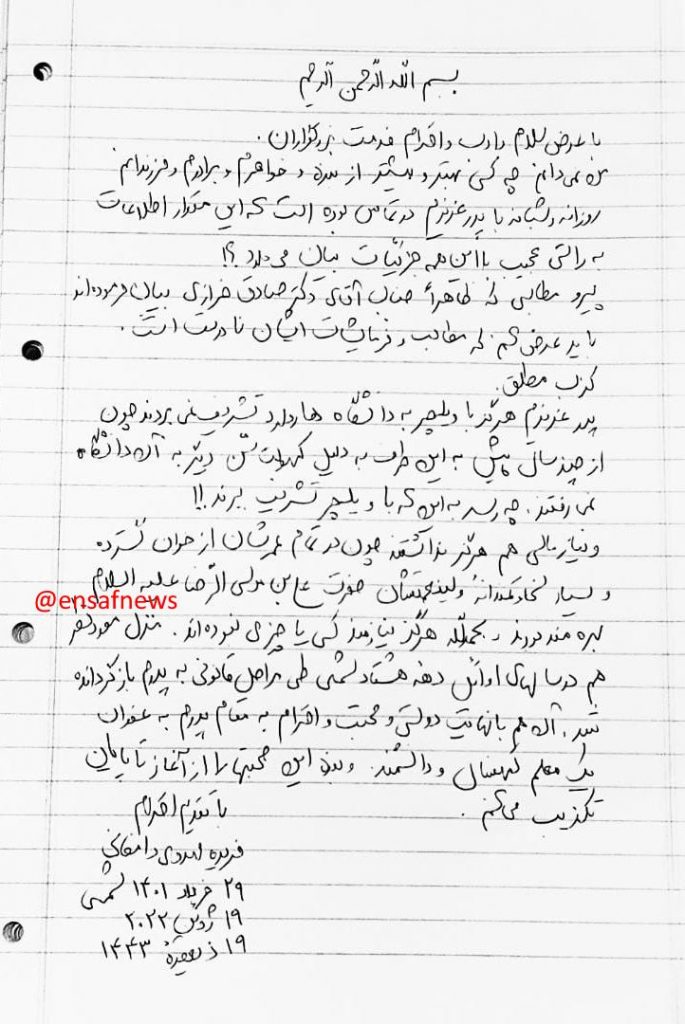 بسم الله الرحمن الرحیم
با عرض سلام و ادب و احترام خدمت بزرگواران.
من نمی‌دانم چه کسی بهتر و بیشتر از بنده و خواهرم و برادرم و فرزندانم
روزانه و شبانه با پدر عزیزم در تماس بوده است که این مقدار اطلاعات
به راستی عجیب با این همه جزئیات بیان می‌دارد؟!
پیرو مطالبی که ظاهراً جناب آقای دکتر صادق خرازی بیان فرموده‌اند
باید عرض کنم که مطالب و فرمایشات ایشان نادرست است.
کذب مطلق.
پدر عزیزم هرگز با ویلچر به دانشگاه هاروارد تشریف نمی بردند چون
از چند سال پیش به این طرف به دلیل کهولت سن دیگر به آن دانشگاه
نمی رفتند. چه رسد به این که با ویلچر تشریف ببرند!!
و نیاز مالی هم هرگز نداشتند چون در تمام عمرشان از خوان گسترده
و بسیار سخاوتمندانه ولینعمتشان حضرت علی بن موسی الرضا علیه السلام
@ensafnews
بهره مند بودند و بحمدلله هرگز نیازمند کسی یا چیزی نبوده‌اند. منزل مورد نظر
هم در سالهای اوائل دهه هشتاد شمسی طی مراحل قانونی به پدرم بازگردانده
شد. آن هم با نهایت دوستی و محبت و احترام به مقام پدرم به عنوان
یک معلم کهنسال و دانشمند. و بنده این صحبتها را از آغاز تا پایان
تکذیب می‌کنم.
با تقدیم احترام
فریده مهدوی دامغانی
۲۹ خرداد ۱۴۰۱ شمسی
۱۹ ژوئن ۲۰۲۲
۱۹ ذیقعده ۱۴۴۳